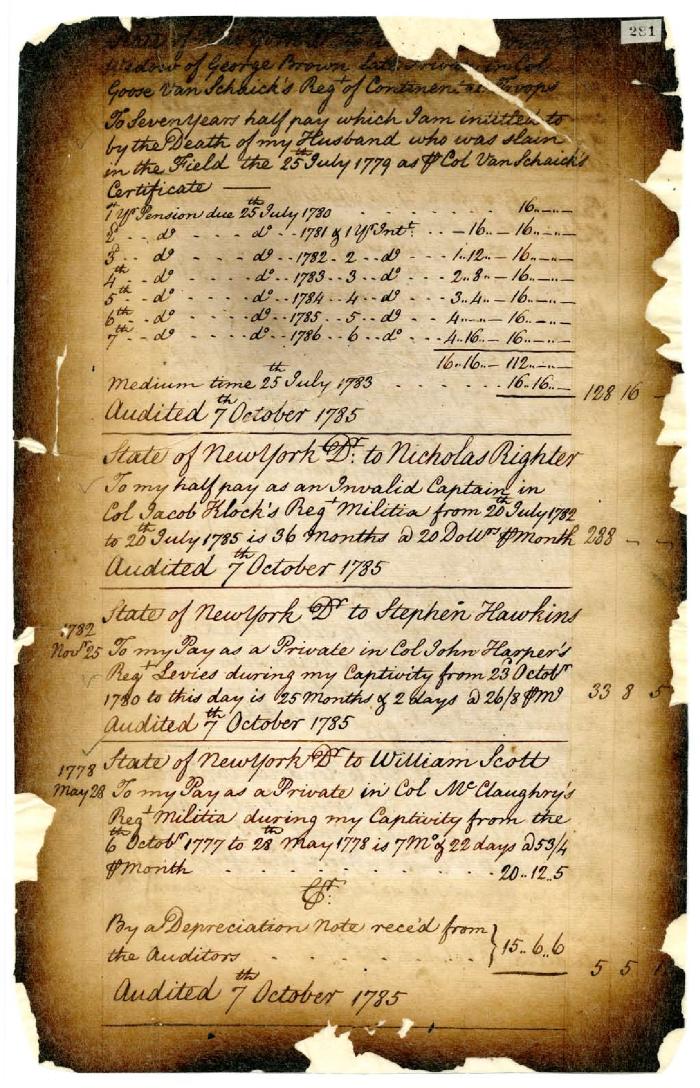 291
State of New York Dr to
Widow of George Brown late Private in Col
Goose Van Schaick's Regt of Continental Troops
To Seven Years half pay which I am intitled to
by the Death of my Husband who was slain
in the Field the 25th July 1779 as ⅌ Col Van Schaick's
Certificate —
1 Yrs Pension due 25th July 1780 . . . . . . 16..—..—
2d . . do . . . . do . . 1781 & 1 Yrs Intt. . . —16..— 16..—..—
3d . . do . . . . do . . 1782 . . 2 . . do . . . 1..12..— 16..—..—
4th . . do . . . . do . . 1783 . . 3 . . do . . . 2..8..— 16..—..—
5th . . do . . . . do . . 1784 . . 4 . . do . . . 3..4..— 16..—..—
6th . . do . . . . do . . 1785 . . 5 . . do . . . 4..—..— 16..—..—
7th . . do . . . . do . . 1786 . . 6 . . do . . . 4..16..— 16..—..—
16..16..— 112..—..—
Medium time 25th July 1783 . . . . . . 16..16..— 128 16 —
Audited 7th October 1785
State of New York Dr. to Nicholas Righter
To my half pay as an Invalid Captain in
Col Jacob Klock's Regt Militia from 20th July 1782
to 20th July 1785 is 36 Months @ 20 Dollrs ⅌ Month 288 — —
Audited 7th October 1785
State of New York Dr to Stephen Hawkins
1782
Novr 25 To my Pay as a Private in Col John Harper's
Regt Levies during my Captivity from 23d Octobr
1780 to this day is 25 Months & 2 days @ 26/8 ⅌ Mo 33 8 5
Audited 7th October 1785
State of New York Dr to William Scott
1778
May 28 To my Pay as a Private in Col McClaughry's
Regt Militia during my Captivity from the
6th Octobr 1777 to 28th May 1778 is 7 Mo & 22 days @ 53/4
⅌ Month . . . . . . . . 20..12..5
Cr.
By a Depreciation Note reced from
the Auditors . . . . . . } 15..6..6
5 5
Audited 7th October 1785